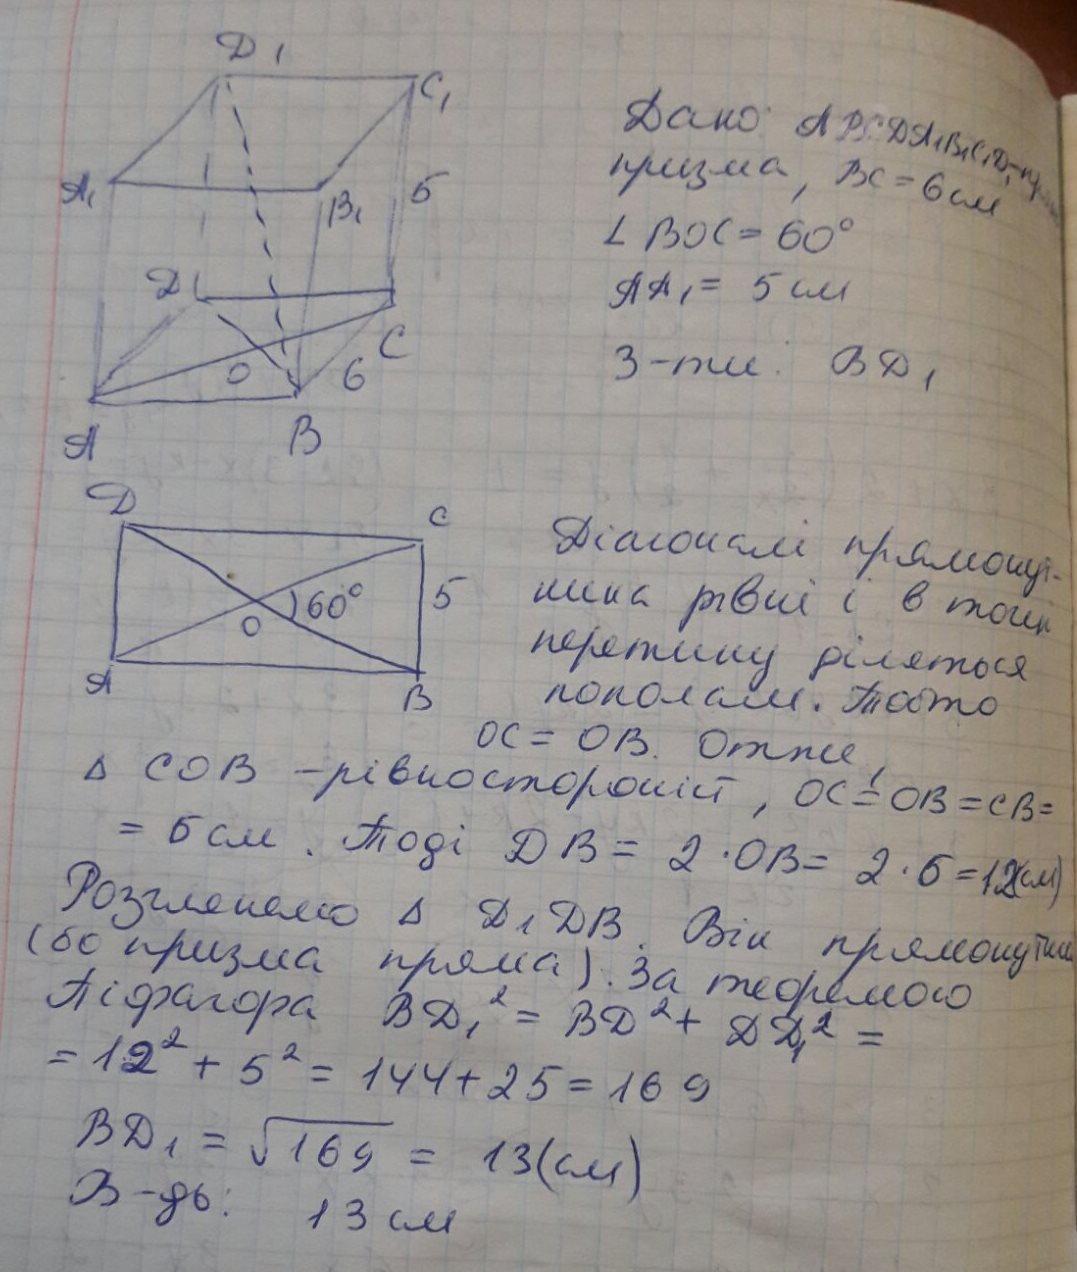 Д1
C1
A1
B1
5
Д
C
O
6
A
B
Дано: ABCDA1B1C1D1-пряма
призма, BC=6см
∠BOC=60°
AA1= 5см
З-ти: BD1
Д
C
60°
5
O
A
B
Діагоналі прямокут-
ника рівні і в точці
перетину діляться
пополам. Тобто
OC=OB. Отже,
Δ COB -рівносторонній, OC=OB=CB=
= 6см. Тоді DB= 2·OB= 2·6=12(см)
Розглянемо Δ D1DB. Він прямокутний
(бо призма пряма). За теоремою
Піфагора BD1²= BD²+ DD1²=
=12²+5²=144+25=169
BD1=√169 = 13(см)
В-дь: 13см